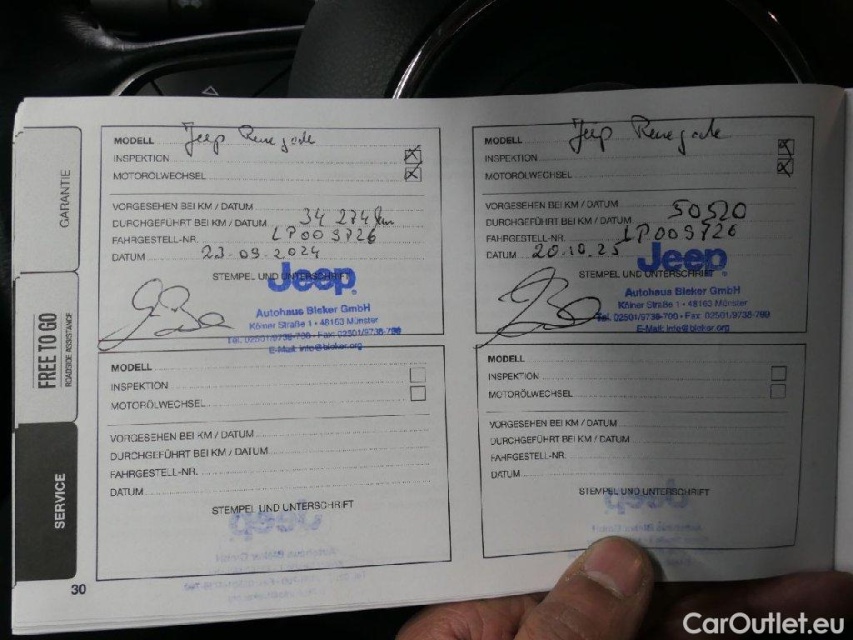 GARANTIE
FREE TO GO
ROADSIDE ASSISTANCE
SERVICE
MODELL Jeep Renegade
INSPEKTION
MOTORÖLWECHSEL
VORGESEHEN BEI KM / DATUM
DURCHGEFÜHRT BEI KM / DATUM 34 274 km
FAHRGESTELL-NR. LP003726
DATUM 23.09.2024
STEMPEL UND UNTERSCHRIFT
Jeep
Autohaus Bleker GmbH
Kölner Straße 1 · 48163 Münster
Tel. 02501/9738-700 · Fax: 02501/9738-799
E-Mail: info@bleker.org
MODELL Jeep Renegade
INSPEKTION
MOTORÖLWECHSEL
VORGESEHEN BEI KM / DATUM
DURCHGEFÜHRT BEI KM / DATUM 50520
FAHRGESTELL-NR. LP003726
DATUM 20.10.25
STEMPEL UND UNTERSCHRIFT
Jeep
Autohaus Bleker GmbH
Kölner Straße 1 · 48163 Münster
Tel. 02501/9738-700 · Fax: 02501/9738-799
E-Mail: info@bleker.org
MODELL
INSPEKTION
MOTORÖLWECHSEL
VORGESEHEN BEI KM / DATUM
DURCHGEFÜHRT BEI KM / DATUM
FAHRGESTELL-NR.
DATUM
STEMPEL UND UNTERSCHRIFT
MODELL
INSPEKTION
MOTORÖLWECHSEL
VORGESEHEN BEI KM / DATUM
DURCHGEFÜHRT BEI KM / DATUM
FAHRGESTELL-NR.
DATUM
STEMPEL UND UNTERSCHRIFT
30
CarOutlet.eu